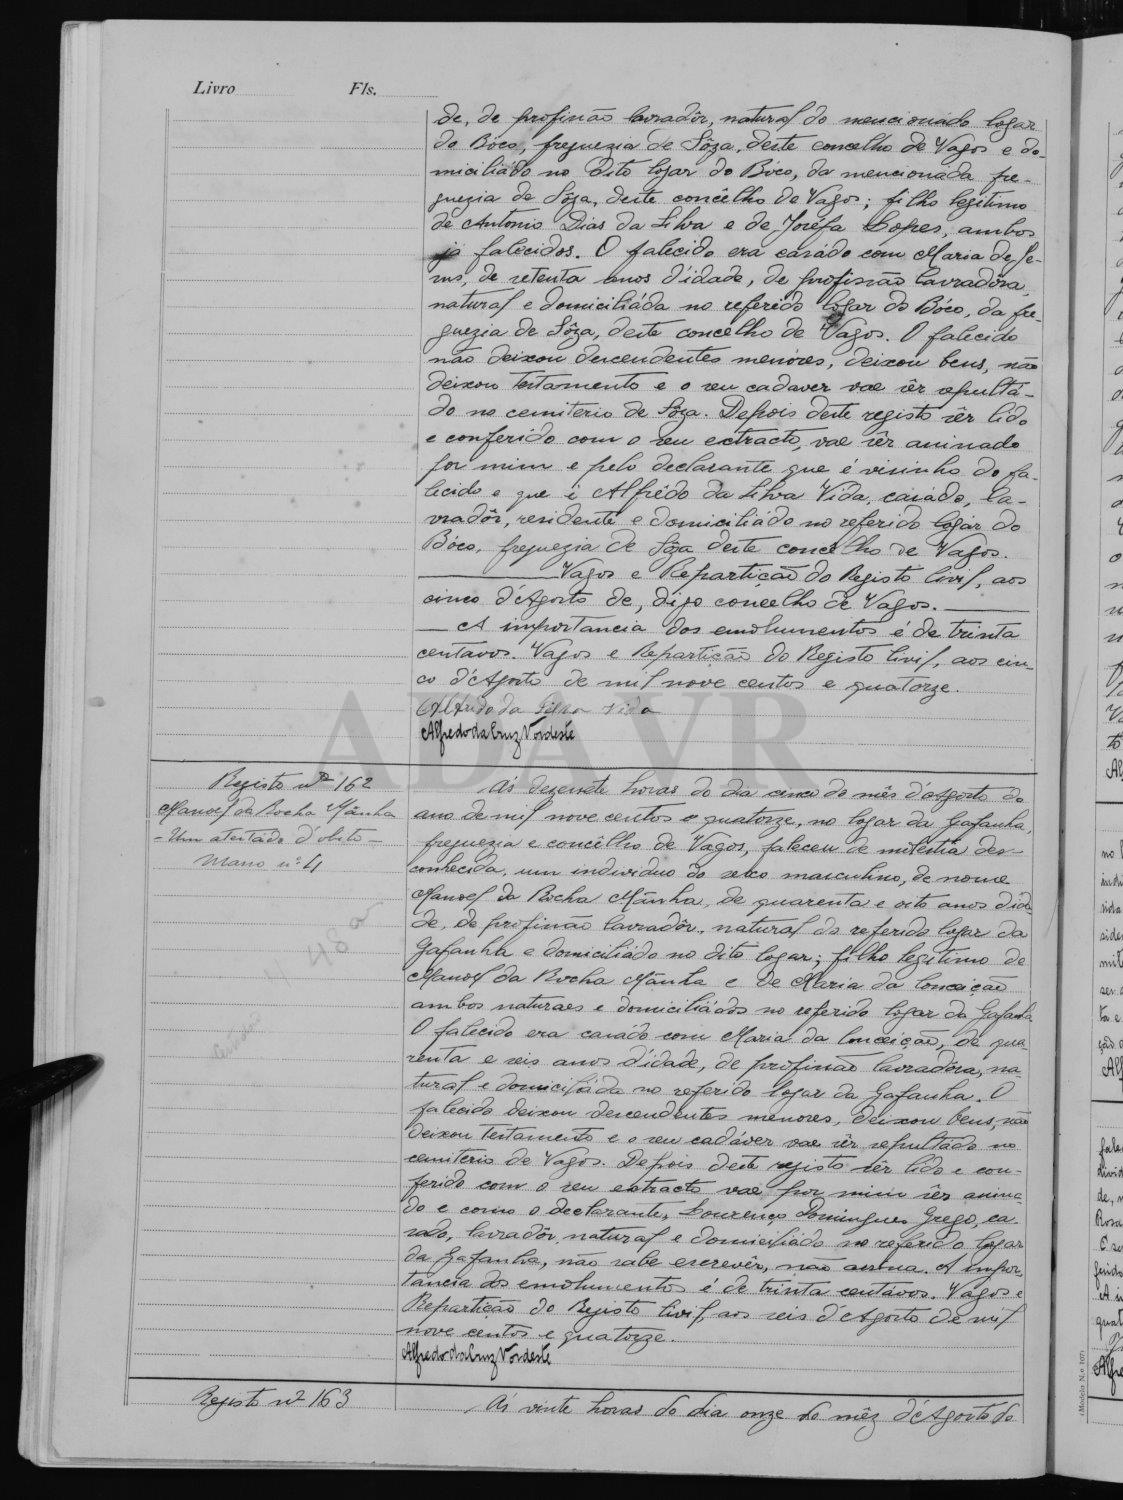 Livro Fls.
de, de profissão lavradôr, natural do mencionado logar
do Bóco, freguezia de Sôza, deste concelho de Vagos e do-
miciliádo no dito logar do Bóco, da mencionada fre-
guezia de Sôza, deste concêlho de Vagos; filho legitimo
de Antonio Dias da Silva e de Joséfa Lopes, ambos
já falecidos. O falecido era casádo com Maria de Je-
sus, de setenta anos d'idade, de profissão lavradôra,
natural e domiciliáda no referido logar do Bóco, da fre-
guezia de Sôza, deste concêlho de Vagos. O falecido
não deixou descendentes menóres, deixou bens, não
deixou testamento e o seu cadaver vae sêr sepultá-
do no cemiterio de Sôza. Depois deste registo sêr lido
e conferido com o seu extracto, vae sêr assinado
por mim e pelo declarante que é visinho do fa-
lecido e que é Alfrêdo da Silva Vida, casádo, la-
vradôr, residente e domiciliádo no referido logár do
Bóco, freguezia de Sôza deste concêlho de Vagos.
Vagos e Repartição do Registo Civil, aos
cinco d'Agosto de, digo concêlho de Vagos.
A importancia dos emolumentos é de trinta
centavos. Vagos e Repartição do Registo Civil, aos cin-
co d'Agosto de mil nove centos e quatorze.
Alfrido da Silva Vida
Alfredo da Cruz Nordeste
ADAVR
Registo nº 162
Manoel da Rocha Mânha
- Um atestádo d'obito -
Maço nº 4
Ás dezesete horas do dia cinco do mês d'Agosto do
ano de mil nove centos e quatorze, no logar da Gafanha,
freguezia e concêlho de Vagos, faleceu de molestia des-
conhecida, um individuo do sexo masculino, de nome
Manoel da Rocha Mânha, de quarenta e oito anos d'ida-
de, de profissão lavradôr, natural do referido logar da
Gafanha e domiciliádo no dito logar; filho legitimo de
Manoel da Rocha Mânha e de Maria da Conceição
ambos naturaes e domiciliádos no referido logar da Gafanha
O falecido era casádo com Maria da Conceição, de qua-
renta e seis anos d'idade, de profissão lavradôra, na-
tural e domiciliáda no referido logar da Gafanha. O
falecido deixou descendentes menores, deixou bens, não
deixou testamento e o seu cadáver vae sêr sepultádo no
cemiterio de Vagos. Depois deste registo sêr lido e con-
ferido com o seu extracto vae por mim sêr assina-
do e como o declarante, Lourenço Domingues Grego, ca-
sado, lavradôr, natural e domiciliádo no referido logar
da Gafanha, não sabe escrevêr, não assina. A impor-
tancia dos emolumentos é de trinta centavos. Vagos e
Repartição do Registo Civil, aos seis d'Agosto de mil
nove centos e quatorze.
Alfredo da Cruz Nordeste
Registo nº 163
Ás vinte horas do dia onze do mêz d'Agosto do
(Modelo N.º 107)